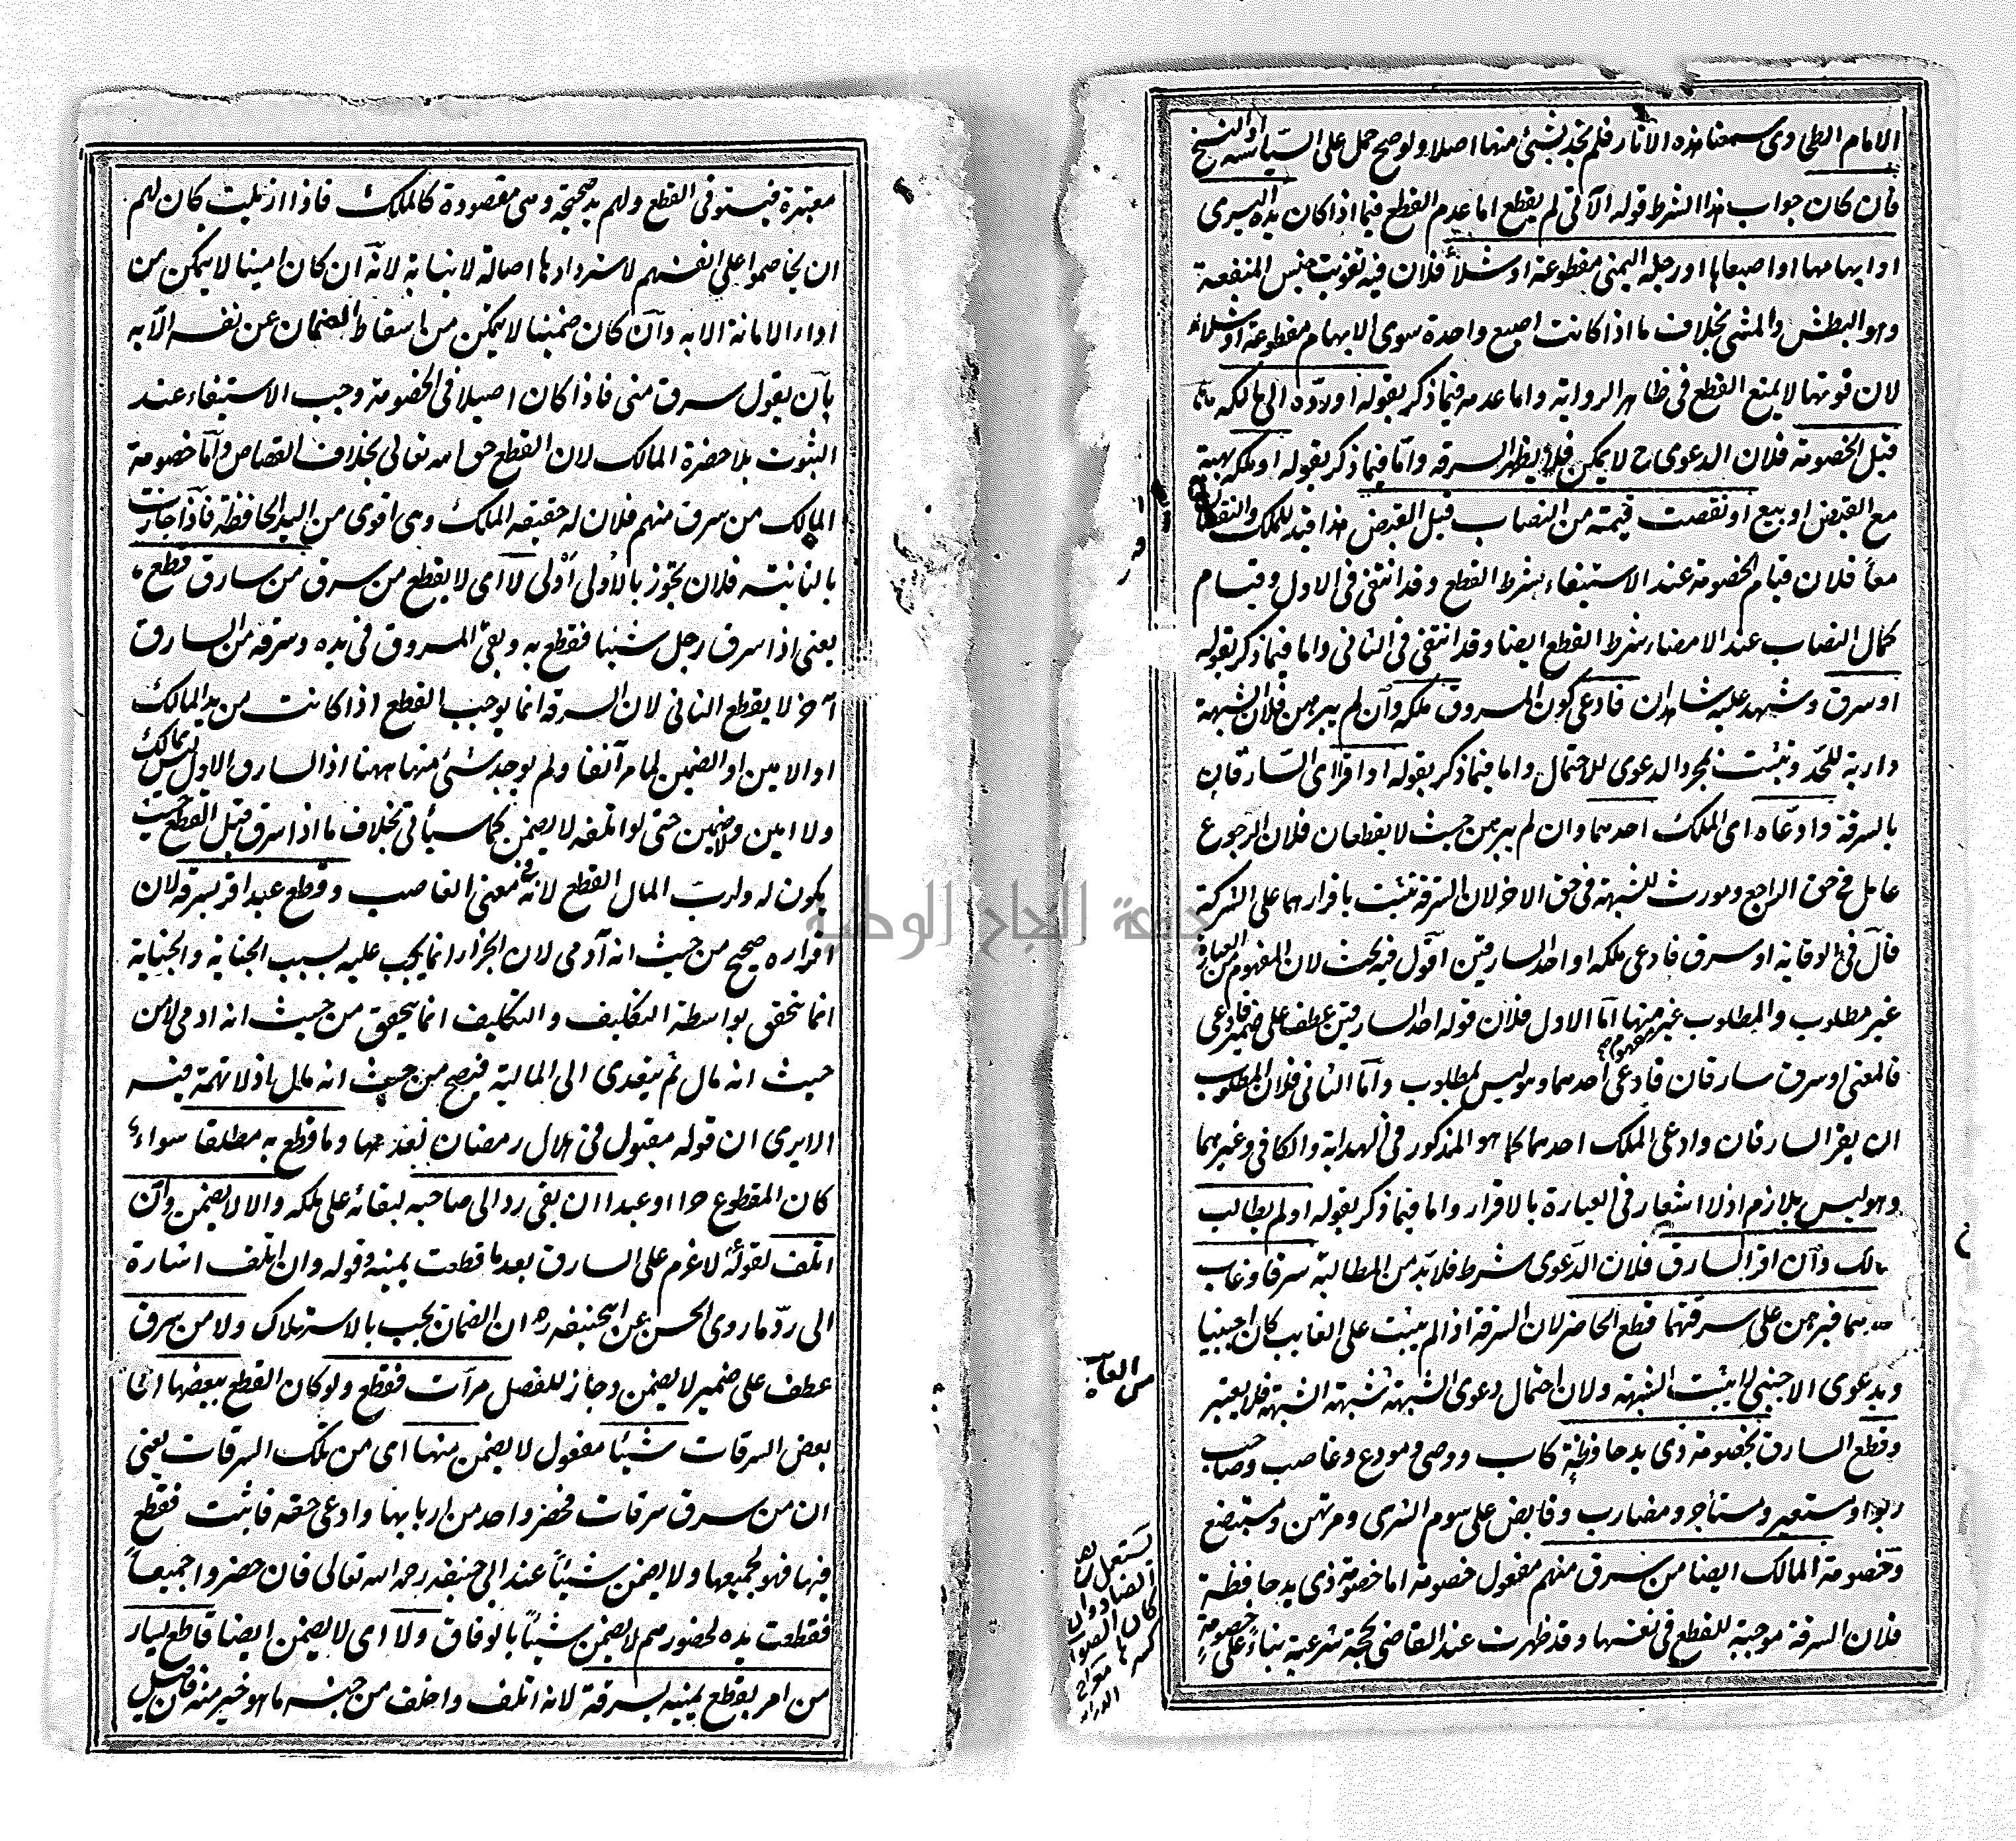 الامام الطحاوى سمعنا هذه الآثار فلم نجد لشئ منها اصلا ولو صح حمل على السياسة او النسخ
فان كان جواب هذا الشرط قوله الآتى لم يقطع اما عدم القطع فيما اذا كان يده اليسرى
او ابهامها او اصبعاها او رجله اليمنى مقطوعة او شلاء فلان فيه تفويت جنس المنفعة
وهو البطش والمشى بخلاف ما اذا كانت اصبع واحدة سوى الابهام مقطوعة او شلاء
لان فوتها لا يمنع القطع فى ظاهر الرواية واما عدمه فيما ذكر بقوله او رده الى مالكه
قبل الخصومة فلان الدعوى ح لا يمكن فلا يظهر السرقه واما فيما ذكر بقوله او ملكه بهبة
مع القبض او بيع او نقصت قيمته من النصاب قبل القبض هذا قيد للملك والنقصان
معا فلان قيام الخصومة عند الاستيفاء شرط القطع وقد انتفى فى الاول وقيام
كمال النصاب عند الامضاء شرط القطع ايضا وقد انتفى فى الثانى واما فيما ذكر بقوله
او سرق وشهد عليه شاهدان فادعى كون المسروق ملكه وان لم يبرهن فلان الشبهة
دارية للحد وتثبت بمجرد الدعوى للاحتمال واما فيما ذكر بقوله او اقرا اى السارقان
بالسرقة وادعاه اى الملك احدهما وان لم يبرهن حيث لا يقطعان فلان الرجوع
عامل فى حق الراجع ومورث للشبهة فى حق الاخر لان السرقة تثبت باقرارهما على الشركة
قال فى الوقاية او سرق فادعى ملكه او احد السارقين اقول فيه بحث لان المفهوم من العبارة
غير مطلوب والمطلوب غير مفهوم منها اما الاول فلان قوله احد السارقين عطف على ضمير فادعى
فالمعنى او سرق سارقان فادعى احدهما وهو ليس بمطلوب واما الثانى فلان المطلوب
ان يقر السارقان وادعى الملك احدهما كما هو المذكور فى الهداية والكافى وغيرهما
وهو ليس بلازم اذ لا اشعار فى العبارة بالاقرار واما فيما ذكر بقوله او لم يطالب
مالك وان اقر السارق فلان الدعوى شرط فلا بد من المطالبة سرقا وغاب
احدهما فبرهن على سرقتهما قطع الحاضر لان السرقة اذا لم يثبت على الغايب كان اجنبيا
وبدعوى الاجنبى لا يثبت الشبهة ولان احتمال دعوى الشبهة شبهة الشبهة فلا يعتبر
وقطع السارق بخصومة ذى يد حافظة كاب ووصى ومودع وغاصب وصاحب
ربوا ومستعير ومستاجر ومضارب وقابض على سوم الشرى ومرتهن ومستبضع
وخصومة المالك ايضا من سرق منهم مفعول خصومة اما خصومة ذى يد حافظة
فلان السرقة موجبة للقطع فى نفسها وقد ظهرت عند القاضى بحجة شرعية بناء على خصومة
معتبرة فيستوفى القطع ولهم يد صحيحة وهى مقصودة كالملك فاذا ازيلت كان لهم
ان يخاصموا على انفسهم لاستردادها اصالة لا نيابة لانه ان كان امينا لا يمكن من
اداء الامانة الا به وان كان ضمينا لا يمكن من اسقاط الضمان عن نفسه الا به
بان يقول سرق منى فاذا كان اصيلا فى الخصومة وجب الاستيفاء عند
الثبوت بلا حضرة المالك لان القطع حق الله تعالى بخلاف القصاص واما خصومة
المالك من سرق منهم فلان له حقيقه الملك وهى اقوى من اليد الحافظه فاذا جازت
بالثانيته فلان تجوز بالاولى اولى لا اى لا يقطع من سرق من سارق قطع
يعنى اذا سرق رجل شيئا فقطع به وبقى المسروق فى يده وسرقه من السارق
آخر لا يقطع الثانى لان السرقه انما يوجب القطع اذا كانت من يد المالك
او الامين او الضمين لما مر آنفا ولم يوجد شئ منها ههنا اذ السارق الاول ليس بمالك
ولا امين ولا ضمين حتى لو اتلفه لا يضمن كما سيأتى بخلاف ما اذا سرق قبل القطع حيث
يكون له ولرب المال القطع لانه فى معنى الغاصب وقطع عبد اقر بسرقه لان
اقراره صحيح من حيث انه آدمى لان الجزاء انما يجب عليه بسبب الجناية والجناية
انما تتحقق بواسطة التكليف والتكليف انما يتحقق من حيث انه ادمى لا من
حيث انه مال ثم يتعدى الى المالية فيصح من حيث انه مال اذ لا تهمة فيه
الا يرى ان قوله مقبول فى هلال رمضان وما قطع به مطلقا سواء
كان المقطوع حرا او عبدا ان بقى رد الى صاحبه لبقائه على ملكه والا لا يضمن وان
اتلف لقوله لا غرم على السارق بعد ما قطعت يمينه وقوله وان اتلف اشارة
الى رد ما روى الحسن عن ابيحنيفه ره ان الضمان يجب بالاستهلاك ولا من سرق
عطف على ضمير لا يضمن وجاز للفصل مرآت فقطع ولو كان القطع ببعضها اى
بعض السرقات شيئا مفعول لا يضمن منها اى من تلك السرقات يعنى
ان من سرق سرقات فحضر واحد من اربابها وادعى حقه فاثبت فقطع
فيها فهو لجميعها ولا يضمن شيئا عند ابى حنيفه رحمه الله تعالى فان حضروا جميعا
فقطعت يده لحضورهم لا يضمن شيئا بالوفاق ولا اى لا يضمن ايضا قاطع يسار
من امر بقطع يمينه بسرقة لانه اتلف واخلف من جنسه ما هو خير منه فان قيل
جامعة النجاح الوطنية